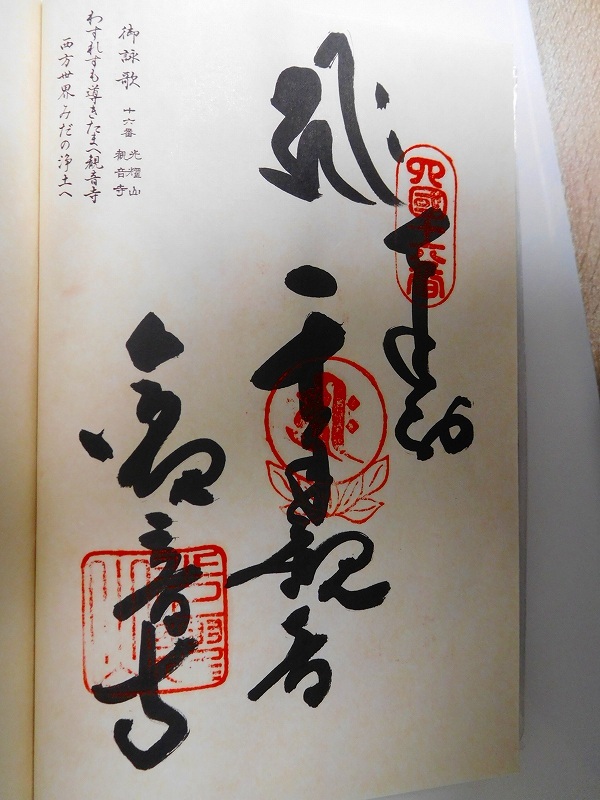 四國十六番
奉納
千手観音
観音寺
御詠歌
十六番
光耀山
観音寺
わすれすも導きたまへ観音寺
西方世界みだの浄土へ